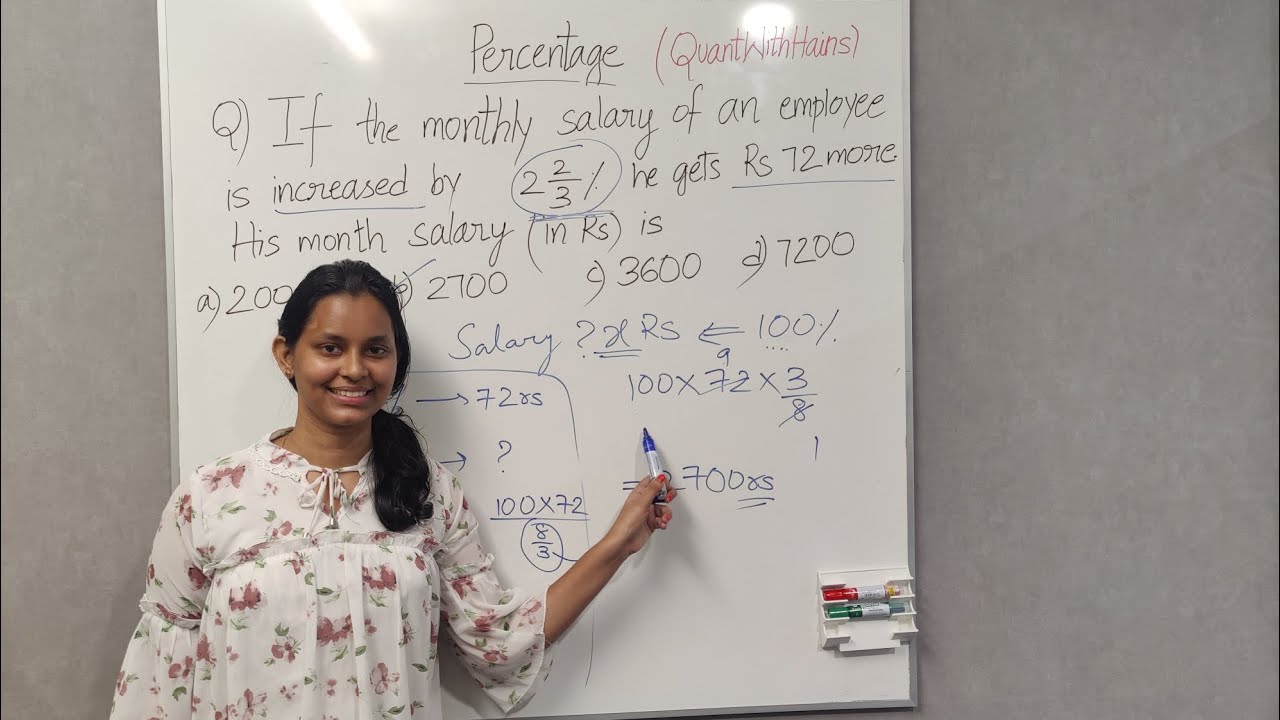 Percentage (QuantWithHains)
Q) If the monthly salary of an employee
is increased by 2 2/3 % he gets Rs 72 more.
His month salary (in Rs) is
a) 200 b) 2700 c) 3600 d) 7200
Salary ? x Rs ⇐ 100 %
% → 72 rs
→ ?
100×72
8/3
9
100 × 72 × 3/8
1
= 2700 rs